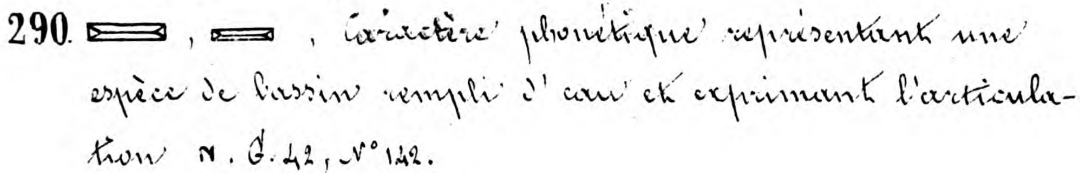 290. , , Caractère phonétique représentant une
espèce de bassin rempli d'eau et exprimant l'articula-
tion N. G. 42, N° 142.